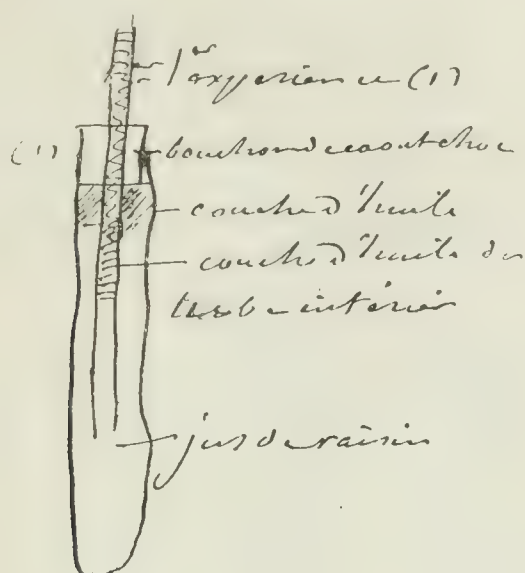 1re expérience (1)
(1) bouchon de caoutchouc
couche d'huile
couche d'huile du
tube intérieur
jus de raisin